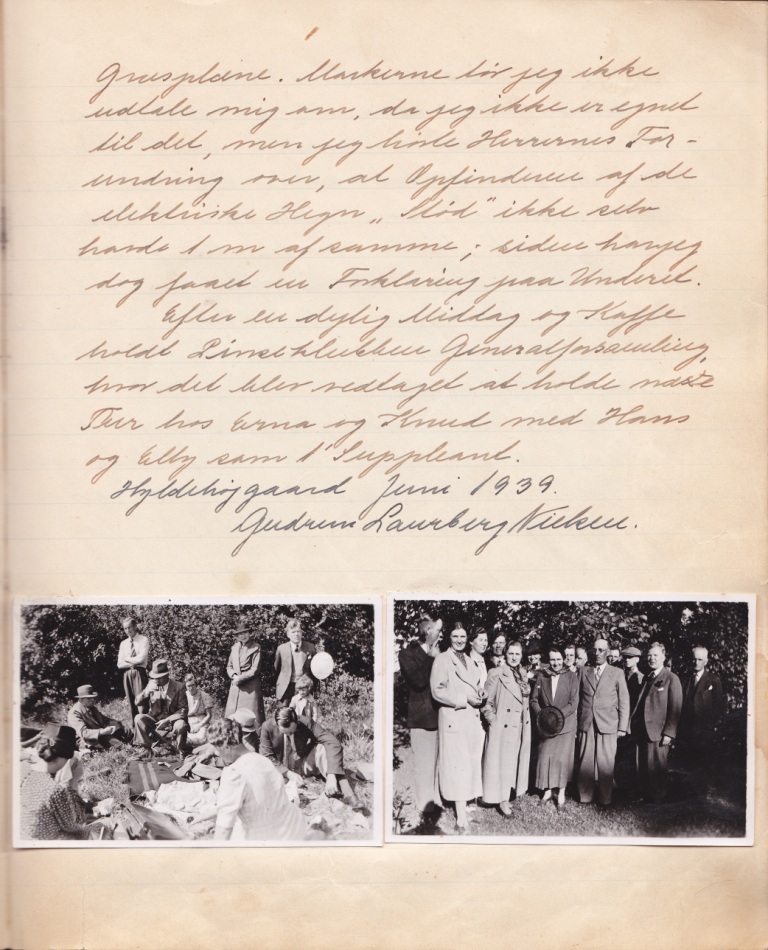 Græsplæne. Markerne tør jeg ikke
udtale mig om, da jeg ikke er egnet
til det, men jeg hørte Herrernes For-
undring over, at Opfinderen af de
elektriske Hegn „Stød" ikke selv
havde 1 m af samme; siden har jeg
dog faaet en Forklaring paa Underet.
Efter en dejlig Middag og Kaffe
holdt Pinseklubben Generalforsamling,
hvor det blev vedtaget at holde næste
Tur hos Erna og Knud med Hans
og Elly som 1' Suppleant.
Hyldehøjgaard Juni 1939.
Gudrun Laurberg Nielsen.